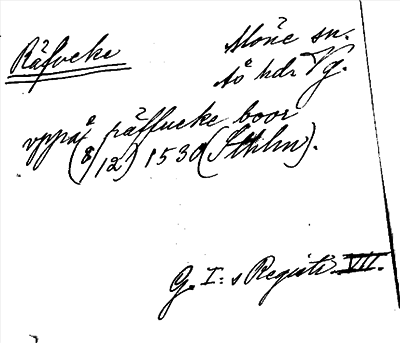 Räfveke
Mone sn.
Ås hdr Vg.
vppå räffueke boor
(8/12) 1530 (Sthlm).
G. I:s Registr. VII.